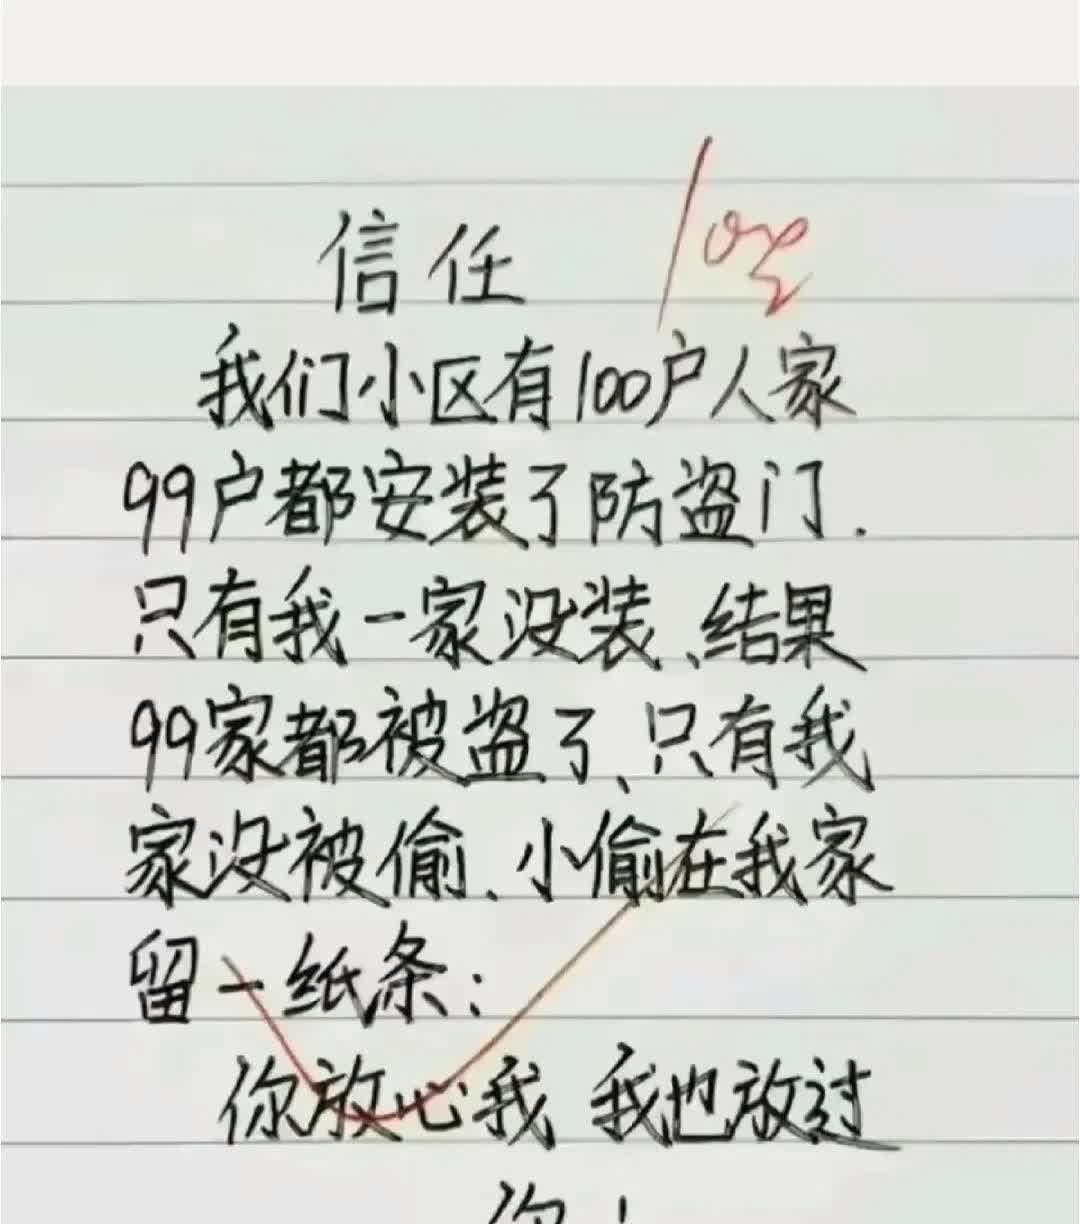 信任
我们小区有100户人家
99户都安装了防盗门.
只有我一家没装、结果
99家都被盗了、只有我
家没被偷、小偷在我家
留一纸条:
你放心我 我也放过
你!